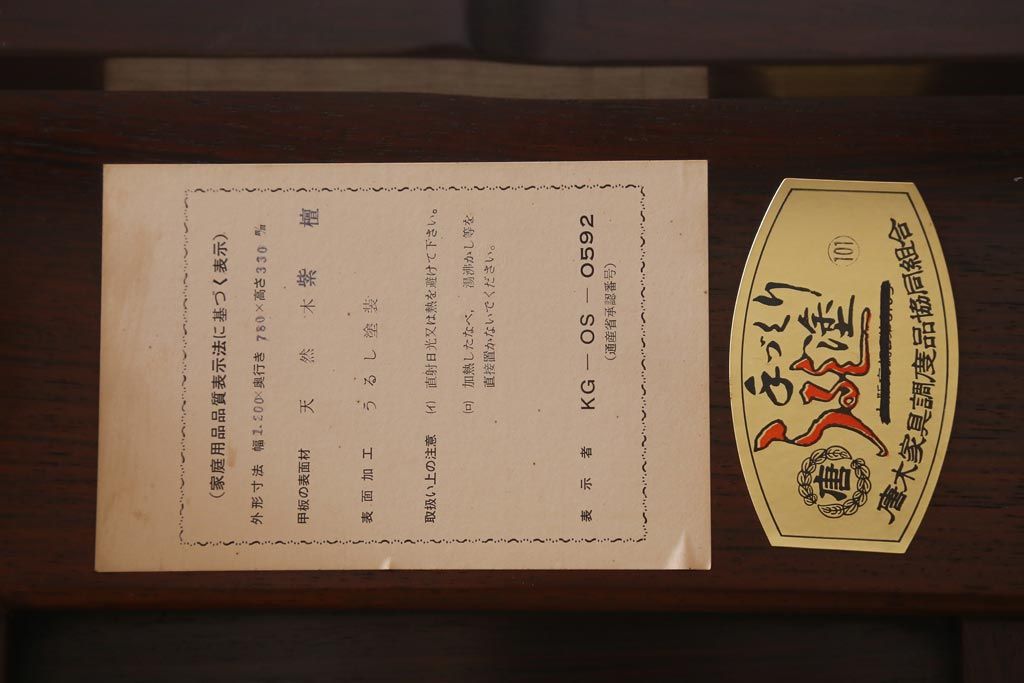 (家庭用品品質表示法に基づく表示)
外形寸法 幅1.200×奥行き780×高さ330㎜
甲板の表面材 天然木紫檀
表面加工 うるし塗装
取扱い上の注意 (イ) 直射日光又は熱を避けて下さい。
(ロ) 加熱したなべ, 湯沸かし等を
直接置かないでください。
表示者 KG-OS-0592
(通産省承認番号)
101
手づくり
うるし塗
唐
唐木家具調度品協同組合